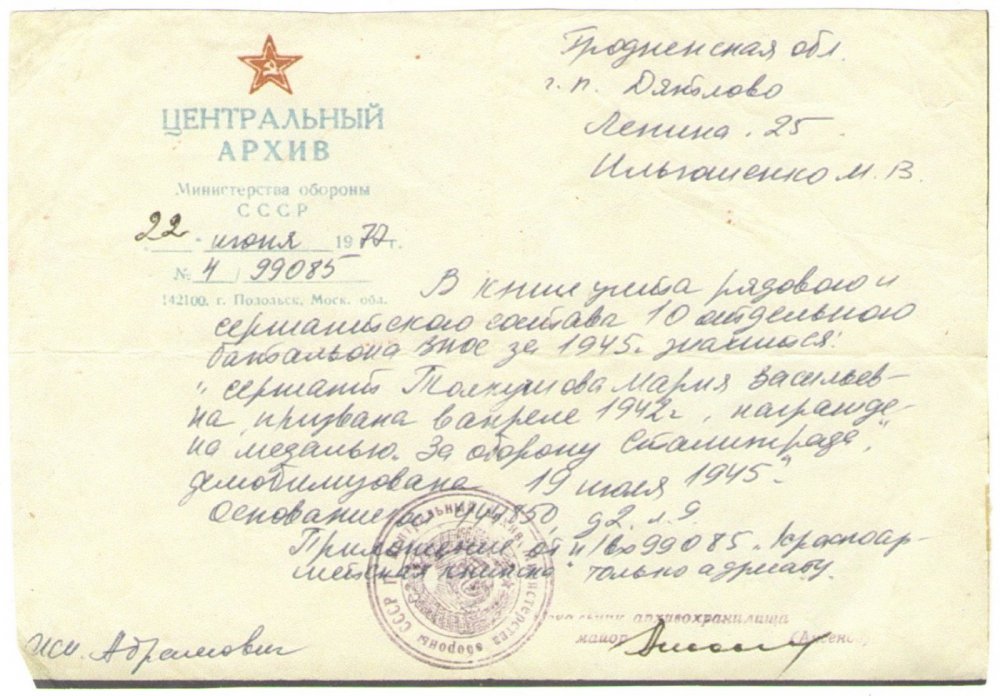 ЦЕНТРАЛЬНЫЙ
АРХИВ
Министерства обороны
СССР
22 " июня 1977 г.
№ 4 / 99085
142100, г. Подольск, Моск. обл.
Гродненская обл.
г.п. Дятлово
Ленина 25
Ильюшенко М.В.
В книге учета рядового и
сержантского состава 10 отдельного
батальона ВНОС за 1945г. значится:
"сержант Толкунова Мария Васильев-
на, призвана в апреле 1942г., награжде-
на медалью "За оборону Сталинграда",
демобилизована 19 июля 1945"
Основание: 2. л. 9
Приложение: 99085 "Красноар-
мейская книжка" только адресату.
Центральный архив Министерства обороны СССР
архивохранилища
майор
исп. Абрамович